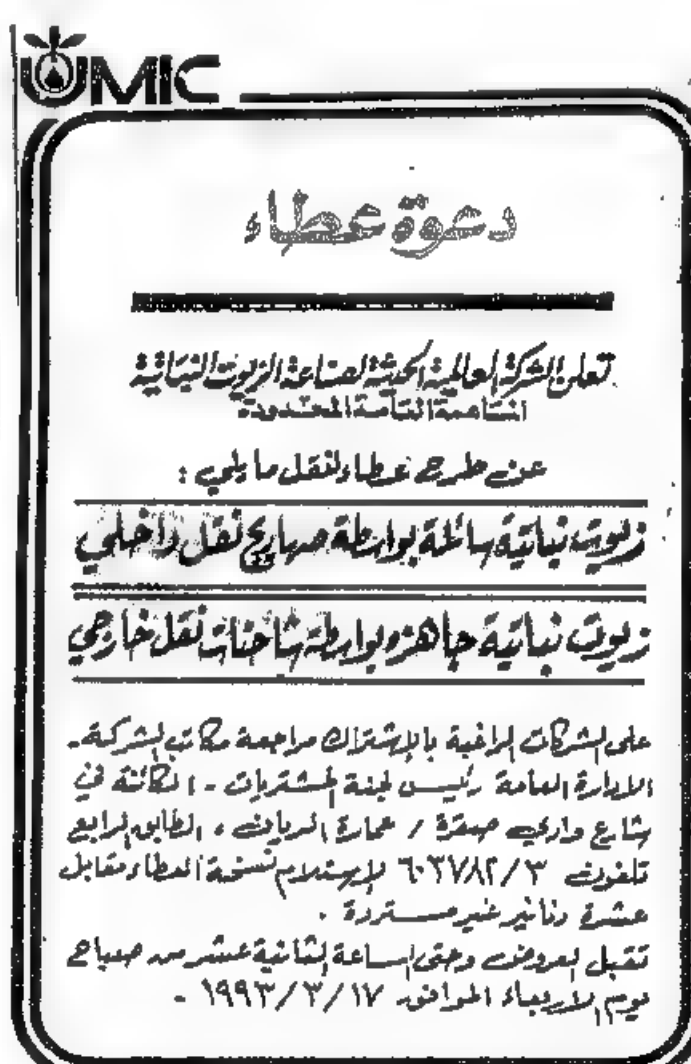 UMIC
دعوة عطاء
تعلن الشركة العالمية الحديثة لصناعة الزيوت النباتية
المساهمة العامة المحدودة
عن طرح عطاء لنقل ما يلي :
زيوت نباتية سائلة بواسطة صهاريج نقل داخلي
زيوت نباتية جاهزه بواسطة شاحنات نقل خارجي
على الشركات الراغبة بالاشتراك مراجعة مكاتب الشركة -
الادارة العامة رئيس لجنة المشتريات - الكائنة في
شارع وادي صقرة / عمارة الرياض ، الطابق الرابع
تلفون ٦٠٣٧٨٢/٣ لإستلام نسخة العطاء مقابل
عشرة دنانير غير مستردة .
تقبل العروض وحتى الساعة الثانية عشر من صباح
يوم الاربعاء الموافق ١٩٩٣/٣/١٧ -